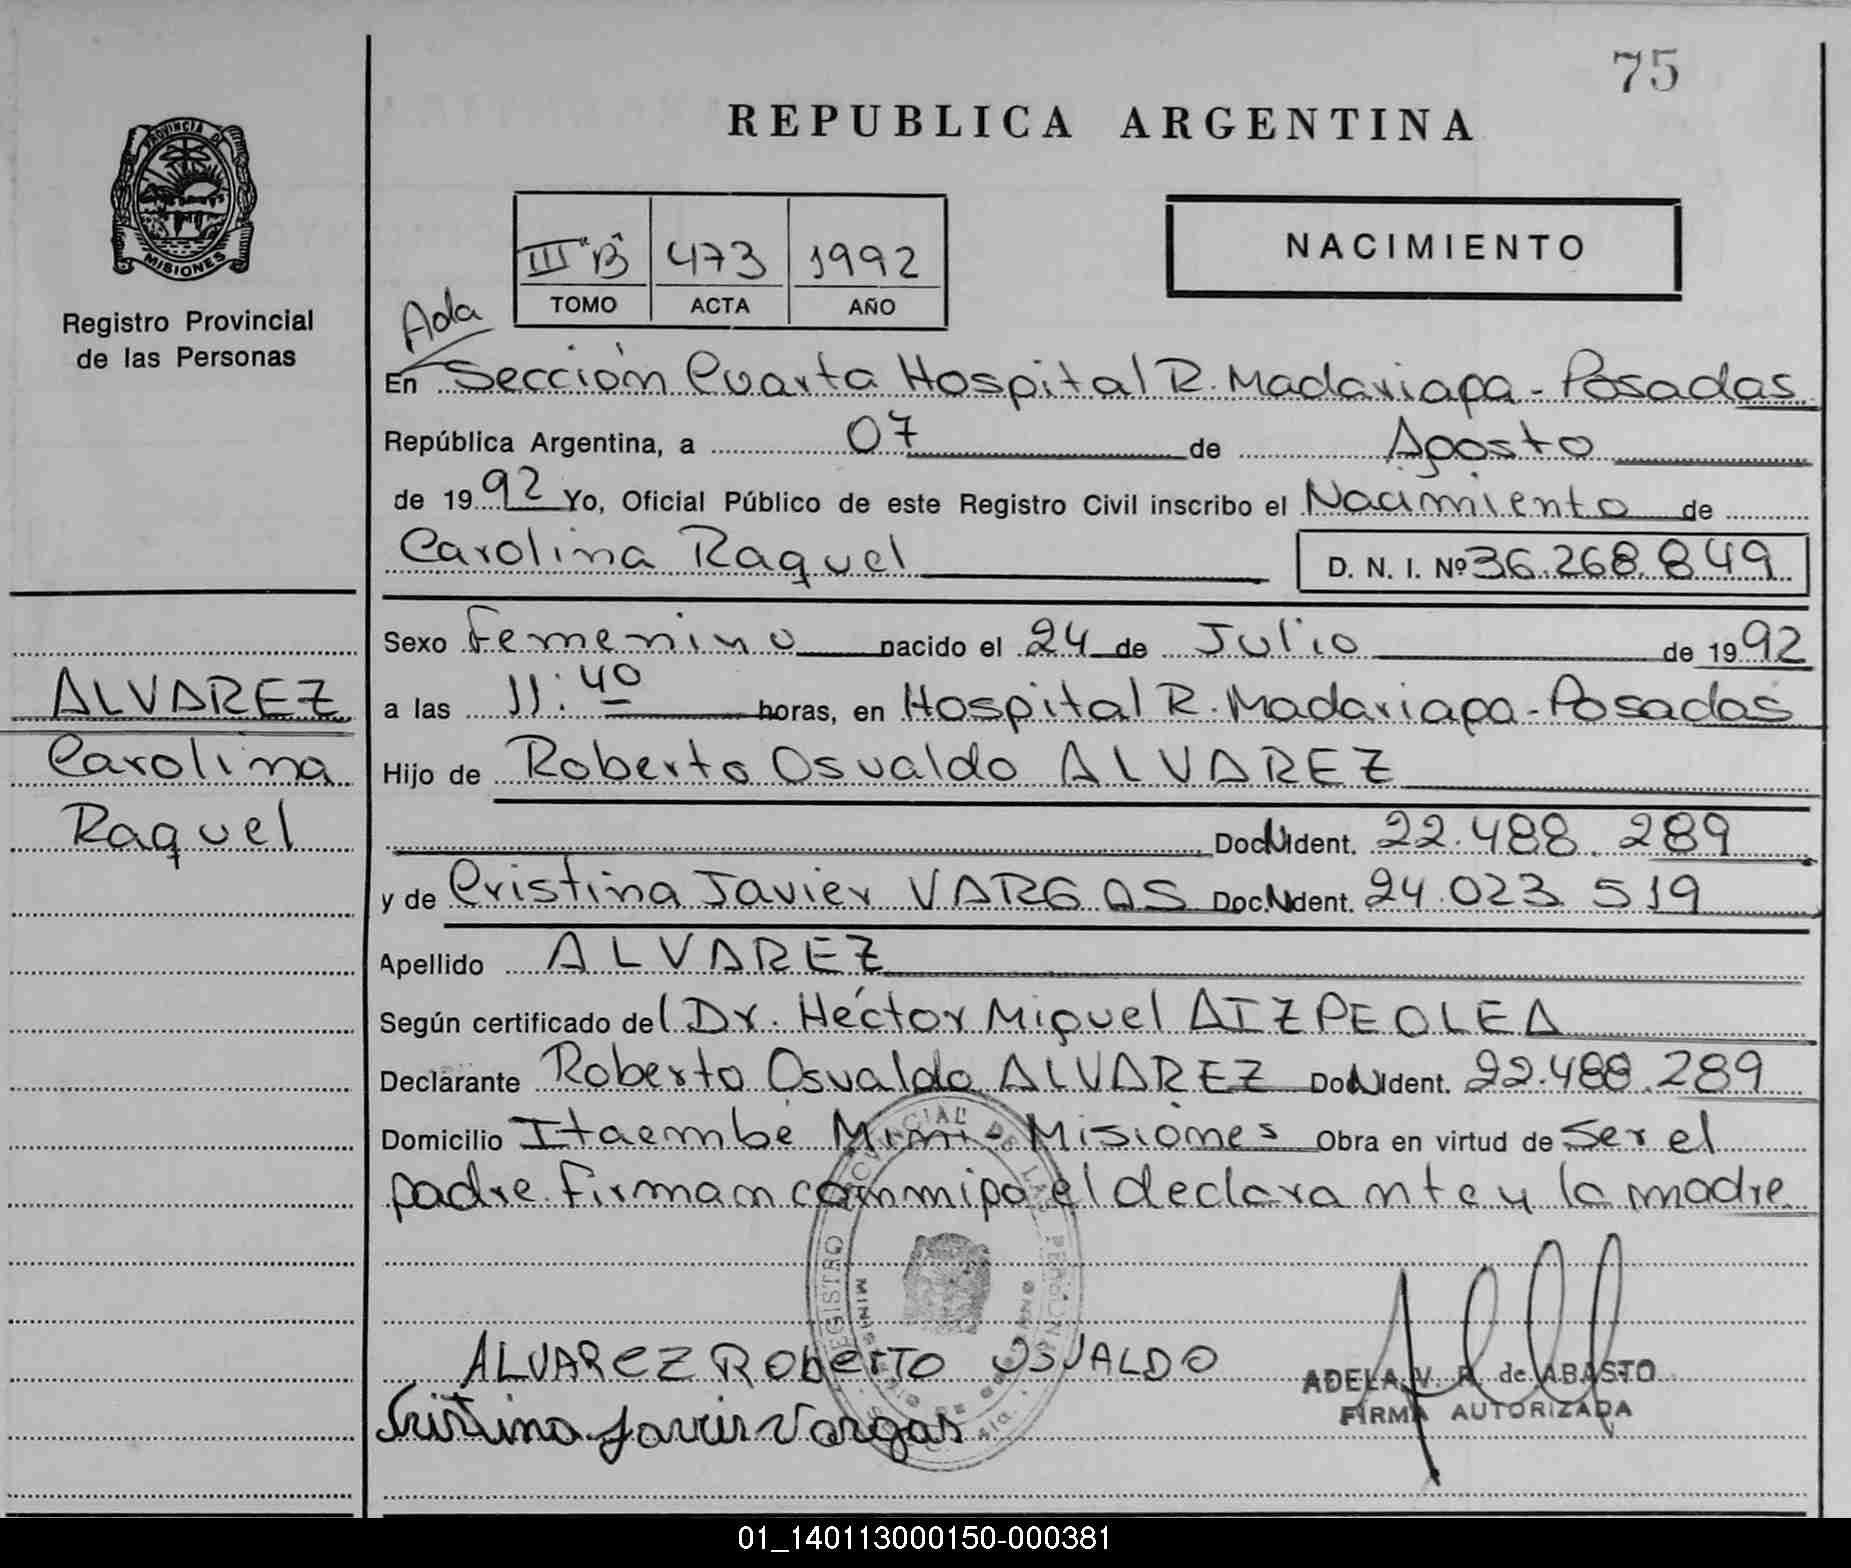 75
REPUBLICA ARGENTINA
PROVINCIA DE
MISIONES
Registro Provincial
de las Personas
III "B" 473 1992
TOMO ACTA AÑO
NACIMIENTO
Ada
En Sección Cuarta Hospital R. Madariaga - Posadas
República Argentina, a 07 de Agosto
de 1992 Yo, Oficial Público de este Registro Civil inscribo el Nacimiento de
Carolina Raquel D. N. I. Nº 36.268.849
Sexo Femenino nacido el 24 de Julio de 1992
a las 11:40 horas, en Hospital R. Madariaga - Posadas
Hijo de Roberto Osvaldo ALVAREZ
Doc.N.Ident. 22.488.289
y de Cristina Javier VARGAS Doc.N.Ident. 24.023 519
Apellido ALVAREZ
Según certificado del Dr. Héctor Miguel AIZPEOLEA
Declarante Roberto Osvaldo ALVAREZ Doc.N.Ident. 22.488.289
Domicilio Itaembé Mini - Misiones Obra en virtud de Ser el
padre. Firman conmigo el declarante y la madre
ALVAREZ
Carolina
Raquel
REGISTRO PROVINCIAL DE LAS PERSONAS
ALVAREZ ROBERTO OSVALDO
Cristina Javier Vargas
ADELA V. R. de ABASTO
FIRMA AUTORIZADA
01_140113000150-000381